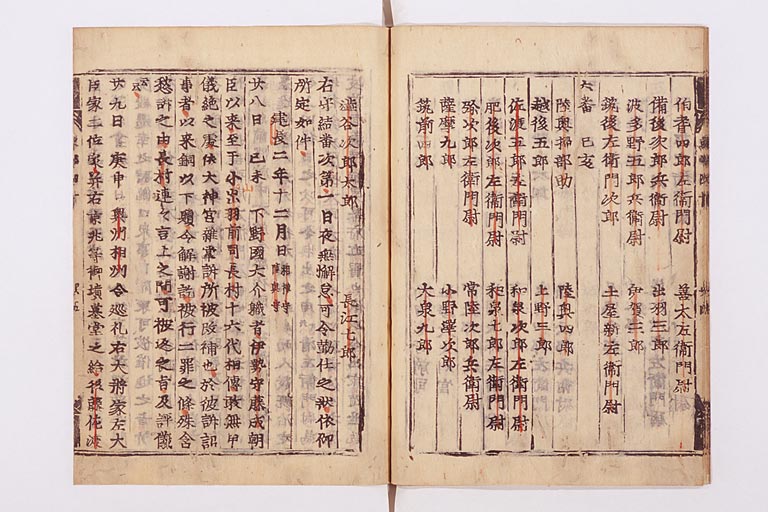 伯耆四郎左衛門尉 善太左衛門尉
備後次郎兵衛尉 出羽三郎
波多野五郎兵衛尉 伊賀三郎
筑後左衛門次郎 土屋新左衛門尉
六番 巳亥
陸奥掃部助 陸奥四郎
越後五郎 上野三郎
佐渡五郎左衛門尉 和泉次郎左衛門尉
肥後次郎左衛門尉 和泉七郎左衛門尉
次郎左衛門尉 常陸次郎兵衛尉
薩摩九郎 小野澤次郎
筑前四郎 大泉九郎
澁谷次郎太郎 長江七郎
右守結番次第一日夜無懈怠可令勤仕之状依仰
所定如件
建長二年十二月日 相模守 陸奥守
廿八日 己未 下野國大介職者伊勢守藤成朝
臣以来至于小出羽前司長村十六代相傳敢無中
儀絶之處依大神宮雑掌訴所被改補也於彼訴訟
事者以来銅以下贖令解謝訖被行二罪之條殊含
愁訴之由長村連々言上之間可被返之旨及評儀
云云
廿九日 庚申 奥州相州令巡礼右大将家左大
臣家二位家并右京兆等御墳墓堂之給後藤佐渡